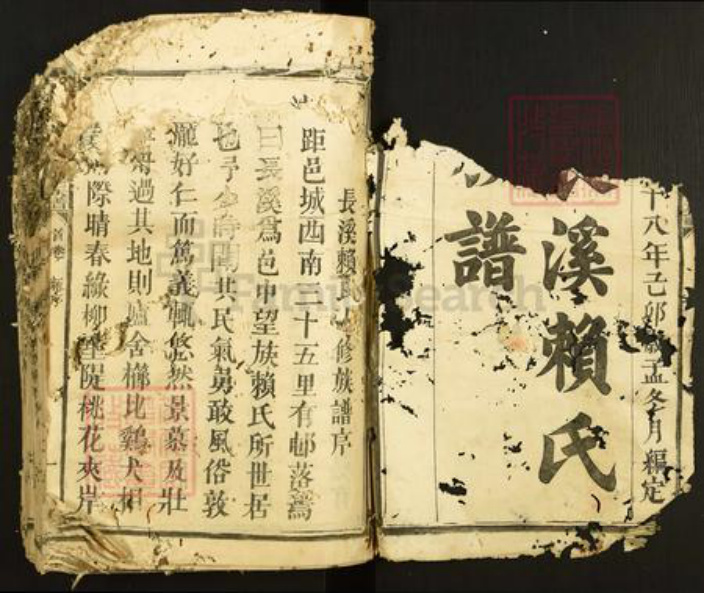 十八年己卯孟冬月編定
溪賴氏
譜
長溪賴氏修族譜序
距邑城西南二十五里有邨落焉
曰長溪爲邑中望族賴氏所世居
也予少時聞其民氣勇敢風俗敦
龐好仁而篤義輒悠然景慕及壯
過其地則廬舍櫛比雞犬相
際晴春綠柳堤桃花夾岸
FamilySearch